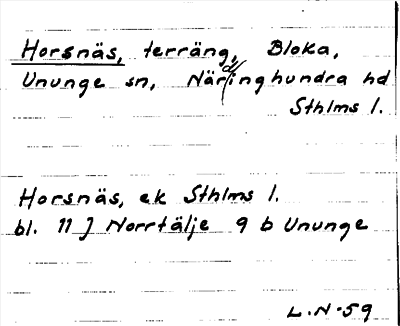 Horsnäs, terräng, Bloka,
Ununge sn, Närdinghundra hd
Sthlms l.
Horsnäs, ek Sthlms l.
bl. 11 J Norrtälje 9 b Ununge
L.N-59